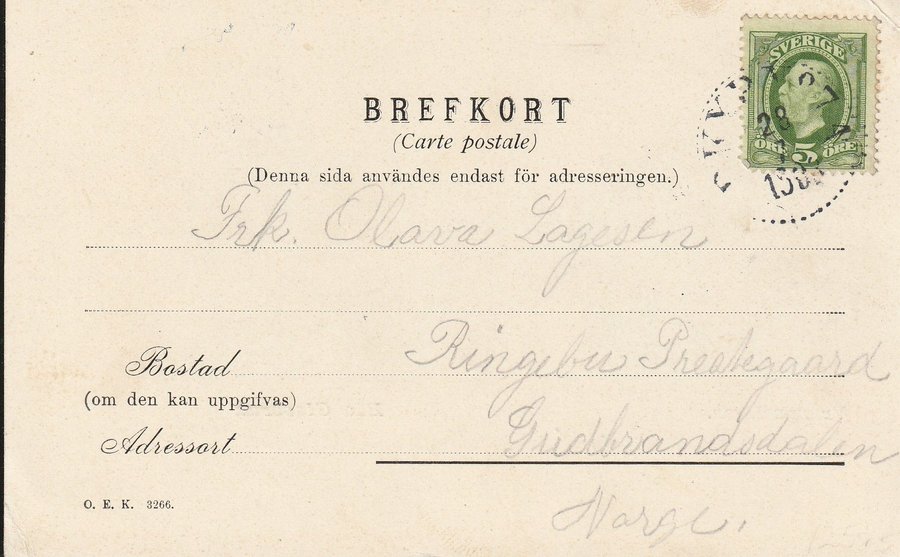 SVERIGE
ÖRE 5 ÖRE
28
BREFKORT
(Carte postale)
(Denna sida användes endast för adresseringen.)
Frk. Olava Lagesen
Ringebu Prestegaard
Bostad
(om den kan uppgifvas)
Gudbrandsdalen
Adressort
O. E. K. 3266.
Norge.